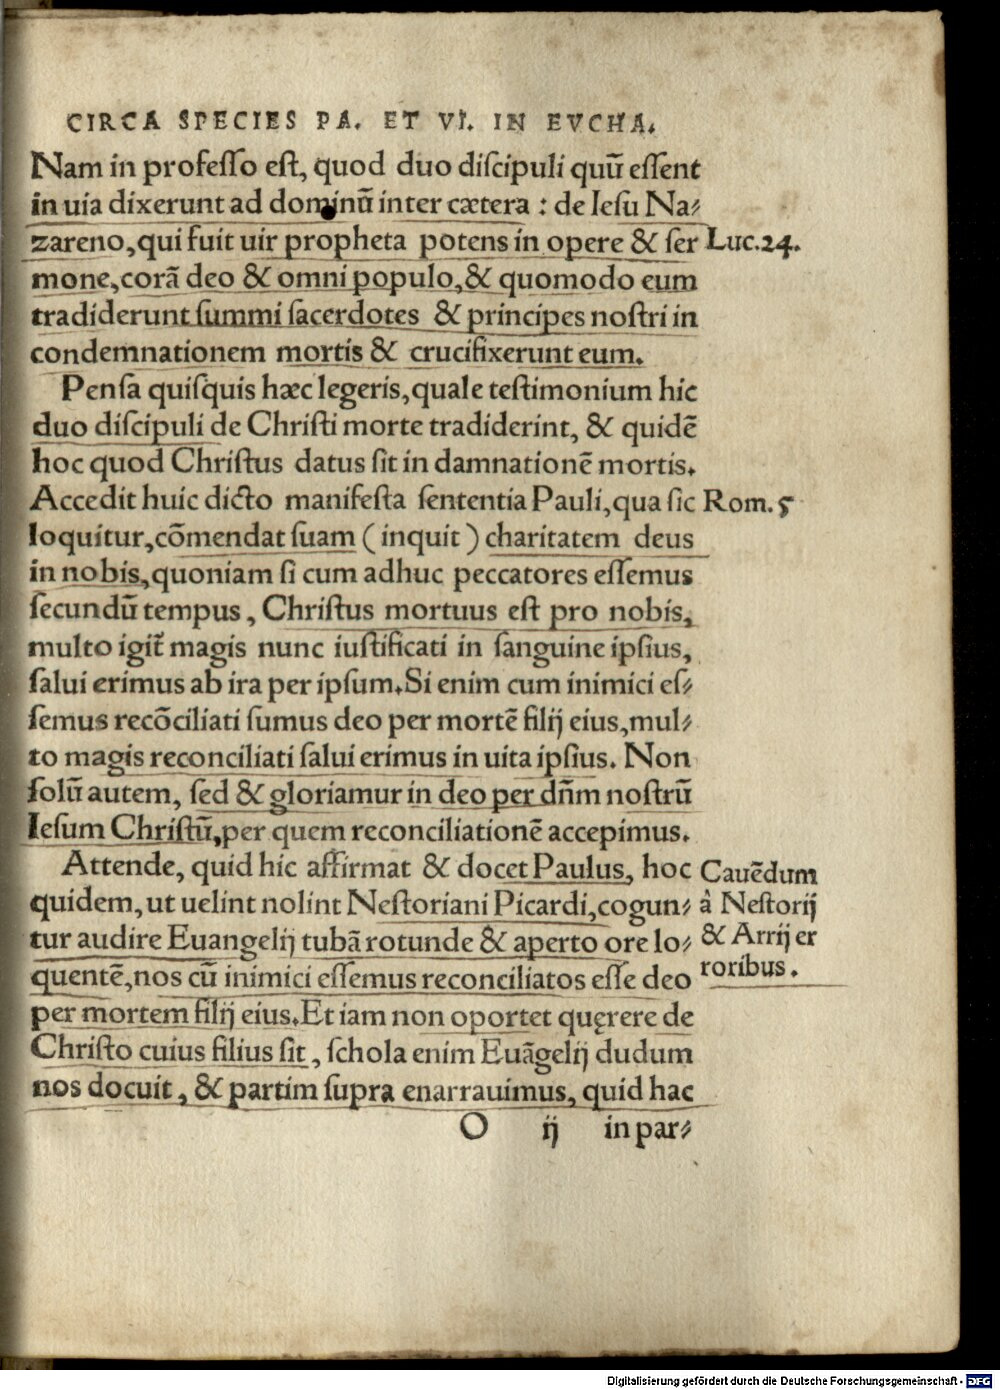 CIRCA SPECIES PA. ET VI. IN EVCHA.
Nam in profeſſo eſt, quod duo diſcipuli quū eſſent
in uia dixerunt ad dominū inter cætera : de Ieſu Na⸗
zareno, qui fuit uir propheta potens in opere & ſer
Luc.24.
mone, corā deo & omni populo, & quomodo eum
tradiderunt ſummi ſacerdotes & principes noſtri in
condemnationem mortis & crucifixerunt eum.
Penſa quiſquis hæc legeris, quale teſtimonium hic
duo diſcipuli de Chriſti morte tradiderint, & quidē
hoc quod Chriſtus datus ſit in damnationē mortis.
Accedit huic dicto manifeſta ſententia Pauli, qua ſic
Rom. 5
loquitur, cōmendat ſuam ( inquit ) charitatem deus
in nobis, quoniam ſi cum adhuc peccatores eſſemus
ſecundū tempus, Chriſtus mortuus eſt pro nobis,
multo igit̃ magis nunc iuſtificati in ſanguine ipſius,
ſalui erimus ab ira per ipſum. Si enim cum inimici eſ⸗
ſemus recōciliati ſumus deo per mortē filij eius, mul⸗
to magis reconciliati ſalui erimus in uita ipſius. Non
ſolū autem, ſed & gloriamur in deo per dn̄m noſtrū
Ieſum Chriſtū, per quem reconciliationē accepimus.
Attende, quid hic affirmat & docet Paulus, hoc
quidem, ut uelint nolint Neſtoriani Picardi, cogun⸗
tur audire Euangelij tubā rotunde & aperto ore lo⸗
quentē, nos cū inimici eſſemus reconciliatos eſſe deo
Cauēdum
à Neſtorij
& Arrij er
roribus.
per mortem filij eius. Et iam non oportet quęrere de
Chriſto cuius filius ſit, ſchola enim Euāgelij dudum
nos docuit, & partim ſupra enarrauimus, quid hac
O ij in par⸗
Digitalisierung gefördert durch die Deutsche Forschungsgemeinschaft - DFG